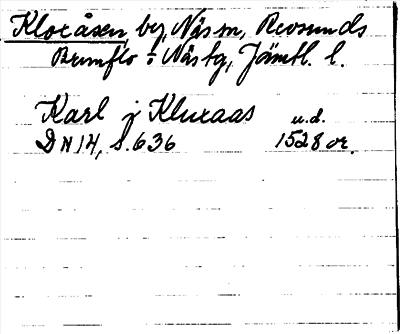 Kloxåsen by, Näs sn, Revsunds
Brunflo o Näs tg, Jämtl. l.
Karl j Kluxaas u.d.
DN 14, s. 636 1528 or.